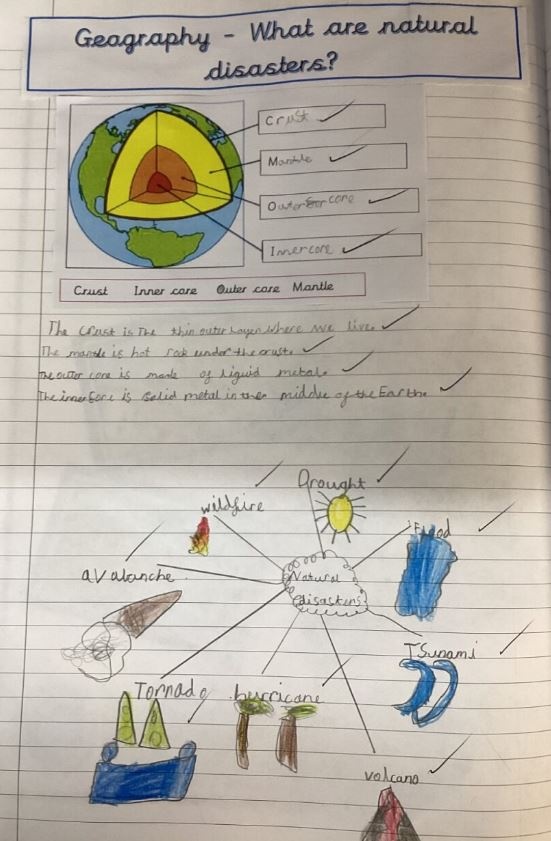 Geography - What are natural
disasters?
Crust
Mantle
Outer core
Inner core
Crust Inner core Outer core Mantle
The crust is The thin outer layer where we live.
The mantle is hot rock under the crust.
The outer core is made of liquid metal.
The inner core is solid metal in the middle of the Earth.
Drought
wildfire
Flood
avalanche
Natural
disasters
Tsunami
Tornado
hurricane
volcano